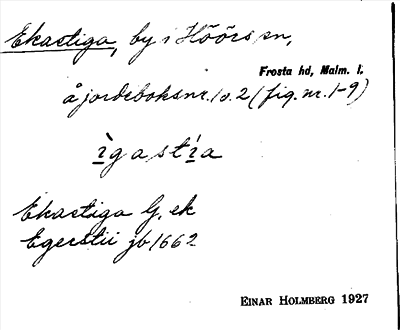 Ekastiga, by i Höörs sn,
Frosta hd, Malm. l.
å jordeboksnr. 1 o. 2 (fig. nr. 1-9)
ìgastía
Ekastiga G. ek
Egerstii jb 1662
EINAR HOLMBERG 1927